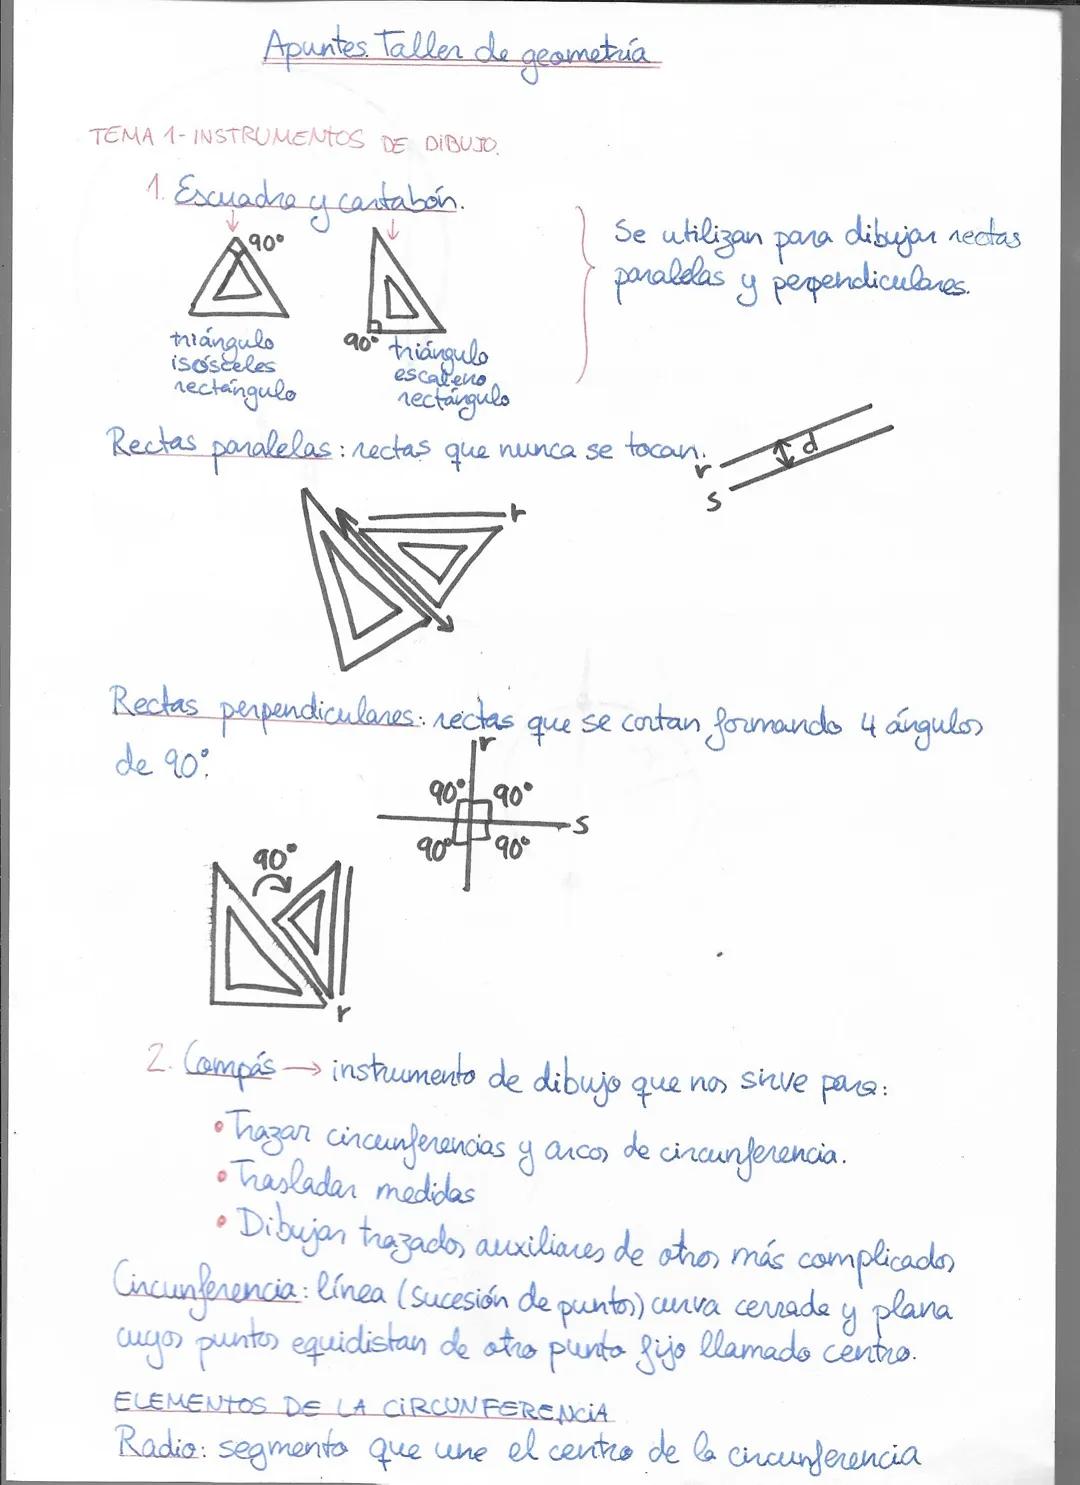 Apuntes. Taller de geometría
TEMA 1- INSTRUMENTOS DE DIBUJO.
1. Escuadra y cartabón.
90°
90°
triángulo
isósceles
rectángulo
triángulo
escaleno
rectángulo
Se utilizan para dibujar rectas
paralelas y perpendiculares.
Rectas paralelas: rectas que nunca se tocan.
r
s
d
r
Rectas perpendiculares: rectas que se cortan formando 4 ángulos
de 90°.
r
90° 90°
s
90° 90°
90°
r
2. Compás → instrumento de dibujo que nos sirve para:
• Trazar circunferencias y arcos de circunferencia.
• Trasladar medidas
• Dibujar trazados auxiliares de otros más complicados
Circunferencia: línea (sucesión de puntos) curva cerrada y plana
cuyos puntos equidistan de otro punto fijo llamado centro.
ELEMENTOS DE LA CIRCUNFERENCIA
Radio: segmento que une el centro de la circunferencia